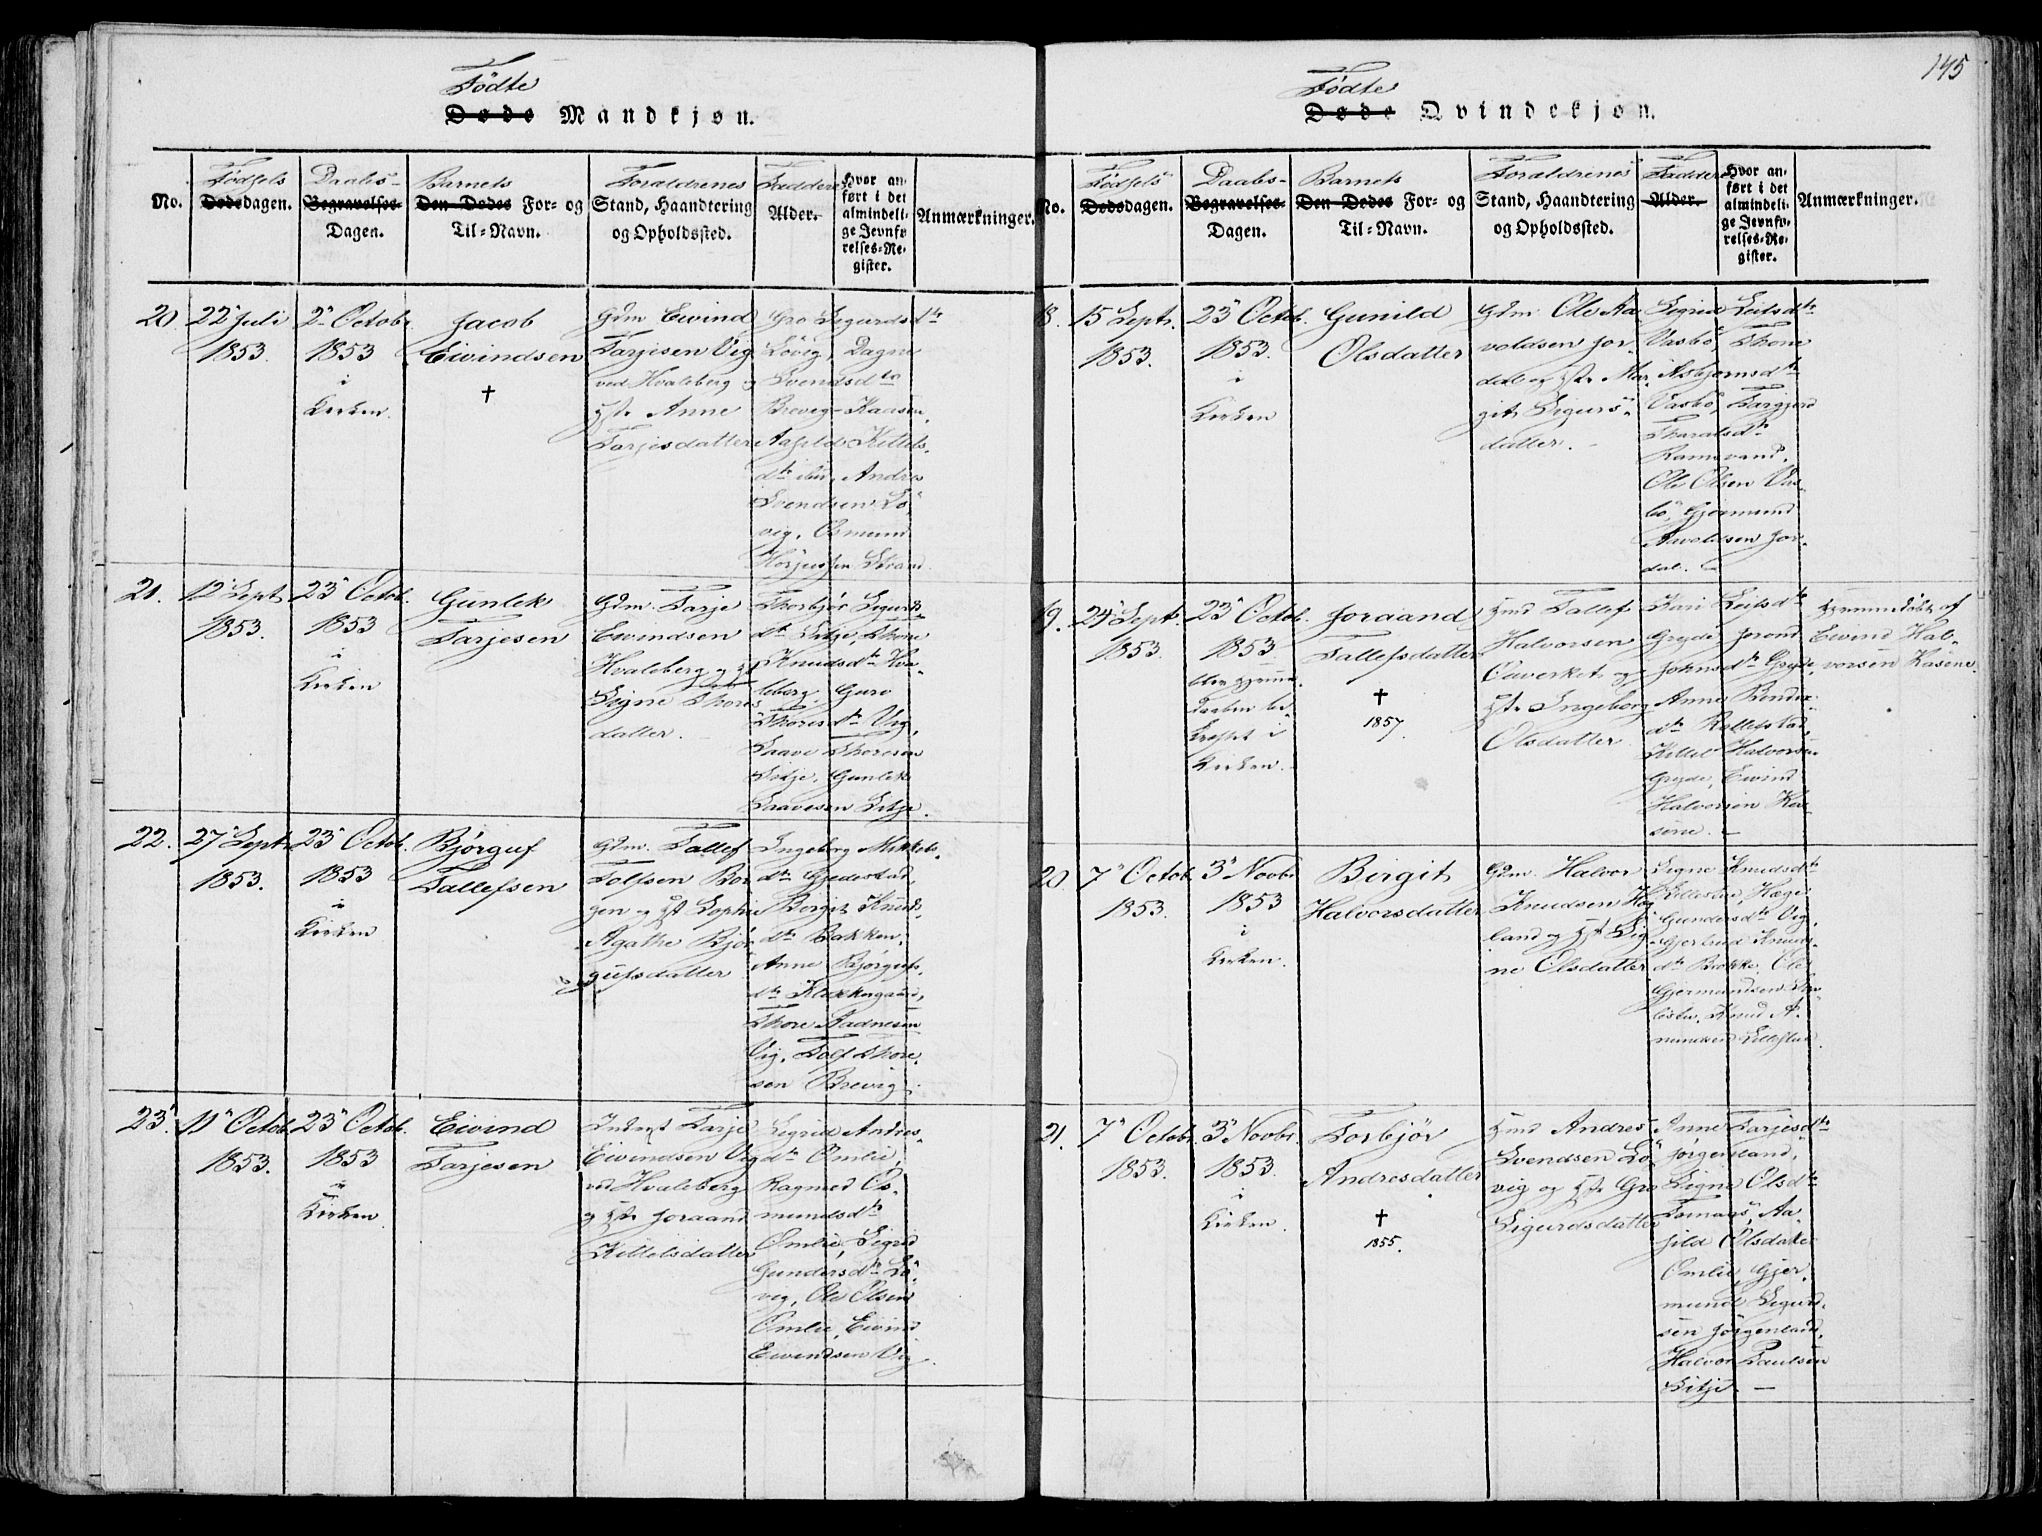 145
Födte
Døde Mandkjøn.
No.
Födsels
Dødsdagen.
Daabs-
Begravelses-
Dagen.
Barnets
Den Dødes For- og
Til-Navn.
Foraldrenes
Stand, Haandtering
og Opholdssted.
Faddere
Alder.
Hvor an-
ført i det
almindeli-
ge Jevnfø-
relses-Re-
gister.
Anmærkninger.
20
22 Juli
1853.
2 Octobr.
1853
i
Kirken.
Jacob
Eivindsen
†
Gdm Eivind
Tarjesen Vig
ved Hvaleberg og
Hst. Anne
Tarjesdatter
Gro Sigurdsdtr
Lövig, Dagne
Svendsdtr
Brevig-Kaasen,
Aasild Kittels-
dtr ibid, Andres
Svendsen Lö-
vig, Osmund
Strand.
21.
12 Sept.
1853.
23 Octob.
1853
i
Kirken
Gunlek
Tarjesen
Gdm. Tarje
Eivindsen
Hvaleberg og Hst
Signe Thores-
datter.
Thorbjör Sigurds-
dtr Litje, Thone
Knudsdtr Hva-
leberg, Guro
Thoresdtr Vig,
Saave Thoresen
Litje, Gunlek
Saavesen Litje.
22.
27 Sept.
1853.
23 Octob.
1853
i
Kirken
Bjørguf
Tallefsen
Gdm. Tallef
Tolfsen Bor-
gen og Hst Sophie
Agathe Bjør-
gufsdatter
Ingeborg Mikkels-
dtr Gjedestad,
Borgit Knuds-
dtr Bakken,
Anne Bjørgufs-
dtr Klokkergaard,
Thore Aadnesen
Vig, Tolf Thore-
sen Brevig.
23.
11 Octob.
1853.
23 Octob.
1853
i
Kirken
Eivind
Tarjesen
Inderst Tarje
Eivindsen Vig
ved Hvaleberg
og Hst. Joraand
Kittelsdatter
Sigrid Andres-
dtr Omlie,
Ragned Os-
mundsdtr
Omlie, Sigrid
Gundersdtr Lö-
vig, Ole Olsen
Omlie, Eivind
Eivindsen Vig.
Födte
Døde Qvindekjøn.
No.
Födsels
Dødsdagen.
Daabs-
Begravelses-
Dagen.
Barnets
Den Dødes For- og
Til-Navn.
Foraldrenes
Stand, Haandtering
og Opholdssted.
Faddere
Alder.
Hvor an-
ført i det
almindeli-
ge Jevnfø-
relses-Re-
gister.
Anmærkninger.
18.
15 Sept.
1853.
23 Octob.
1853.
i
Kirken
Gunild
Olsdatter
Gdm. Ole Aa-
voldsen Jor-
dal og Hst. Mar-
git Sigurs-
datter.
Sigrid Leifsdtr
Vasbö, Thone
Asbjørnsdtr
Vasbö, Targjerd
Tharalsdtr
Ramsvand,
Ole Olsen Vas-
bö, Gjermund
Aavoldsen Jor-
dal.
19.
24 Sept.
1853.
23 Octob.
1853
blev hjemme-
Daaben be-
kræftet i
Kirken.
Joraand
Tallefsdatter
†
1857.
Hmd Tallef
Halvorsen
og
Hst. Ingeborg
Olsdatter
Kari Leifsdtr
Gryde, Jorond
Johnsdtr Gryde,
Anne
dtr Rallestad,
Kittel Halvorsen
Gryde, Eivind
Halvorsen Ka-
sene.
Hjemmedøbt af
Eivind Hal-
vorsen Kasene.
20
7 Octob.
1853.
3 Novbr.
1853
i
Kirken.
Birgit
Halvorsdatter
Gdm. Halvor
Knudsen Hog-
land og Hst Sig-
ne Olsdatter
Signe Knudsdtr
Lillestue, Hæge
Gundersdtr Vig,
Gjertrud Knuds-
dtr Brokke, Ole
Gjermundsen
Knud A-
mundsen Lillestue.
21.
7 Octob.
1853.
3 Novbr.
1853.
i
Kirken.
Torbjör
Andresdatter
†
1855.
Hmd Andres
Svendsen Lö-
vig og Hst. Gro
Sigurdsdatter
Anne Tarjesdtr
Jørgenland,
Signe Olsdtr
Aa-
sild Olsdatter
Omlie, Gjer-
mund Sigurd-
sen Jørgenland,
Halvor Paulsen
Litje.